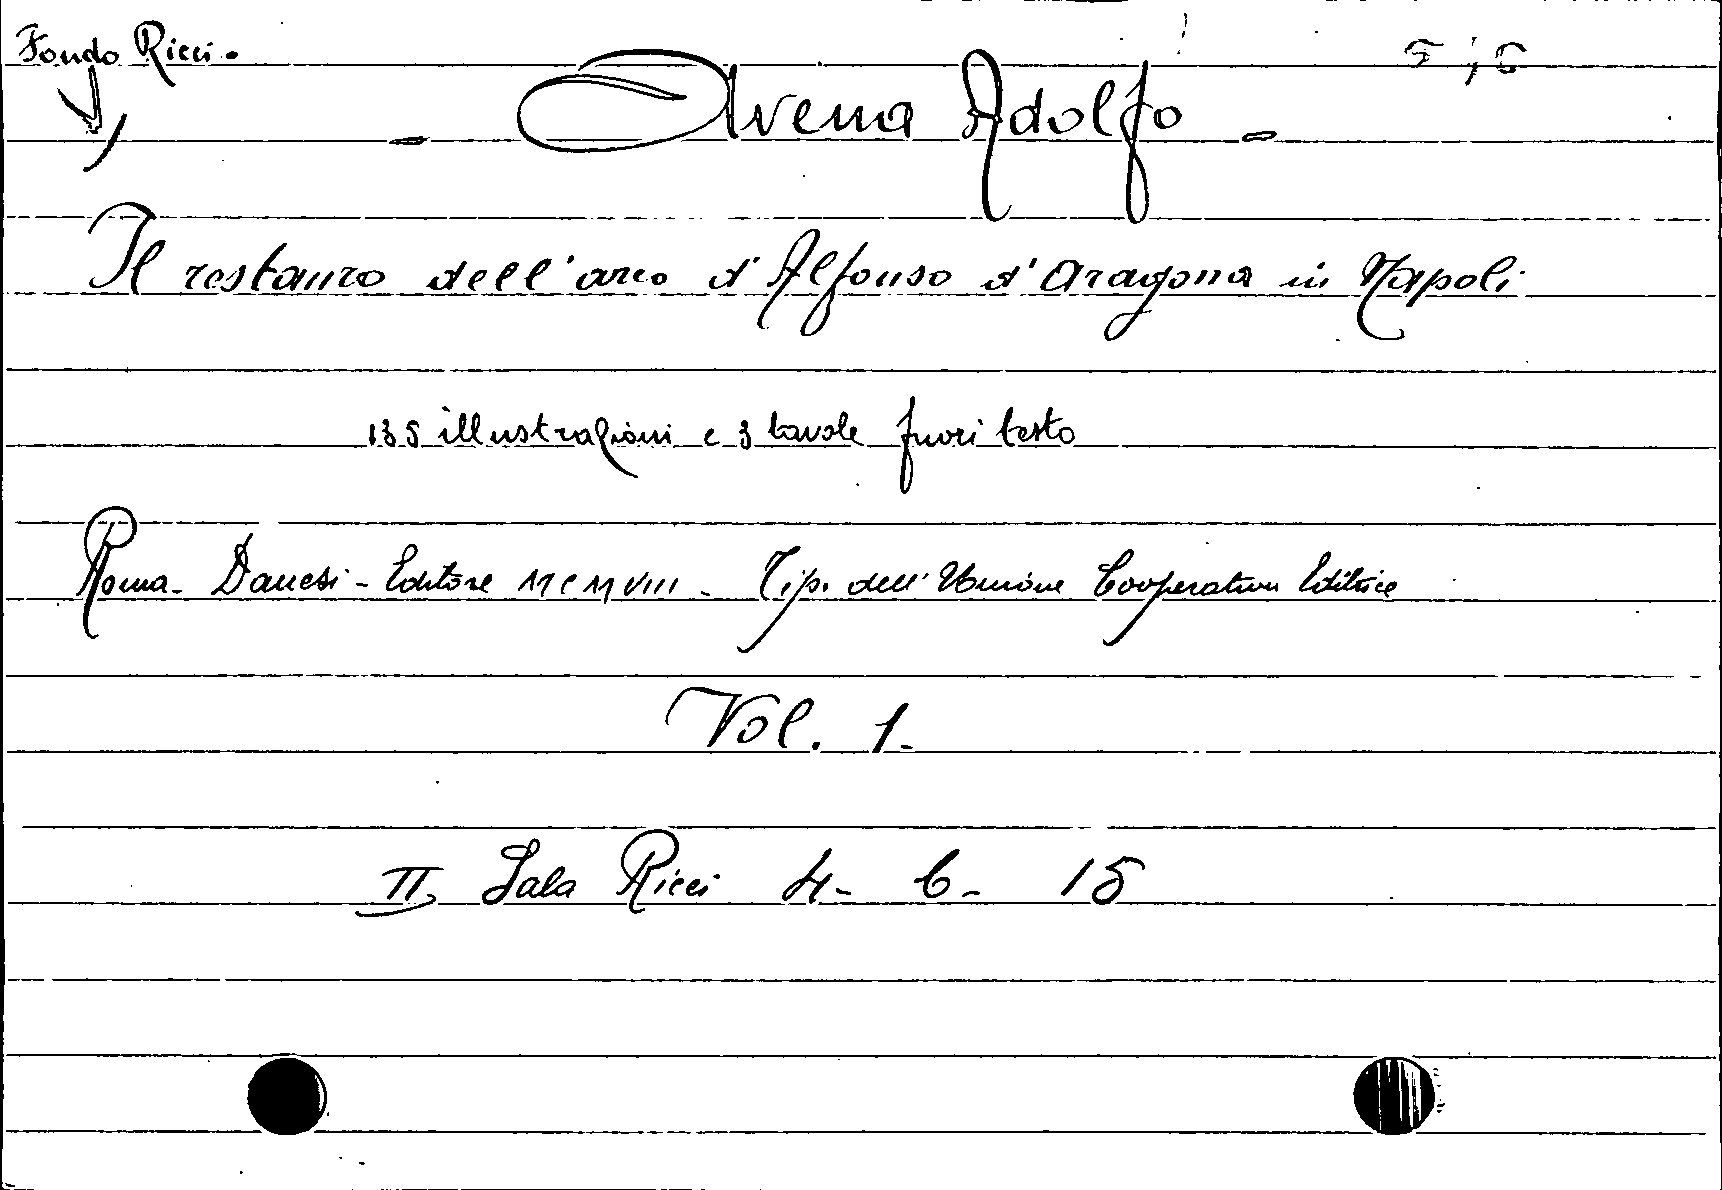 Fondo Ricci.
- Avena Adolfo -
Il restauro dell'arco d'Alfonso d'Aragona in Napoli
135 illustrazioni e 3 tavole fuori testo
Roma - Danesi - Editore MCMVIII - Tip. dell'Unione Cooperativa Editrice
Vol. 1.
II Sala Ricci 4 - 6 - 15